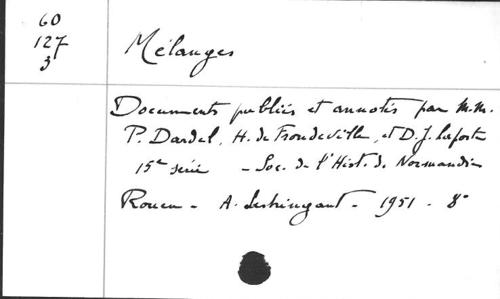 60
127
3
Mélanges
Documents publiés et annotés par M.M.
P. Dardel, H. de Frondeville, et D. J. Laporte
15e série - Soc. de l'Hist. de Normandie
Rouen - A. Lestringant - 1951 - 8°